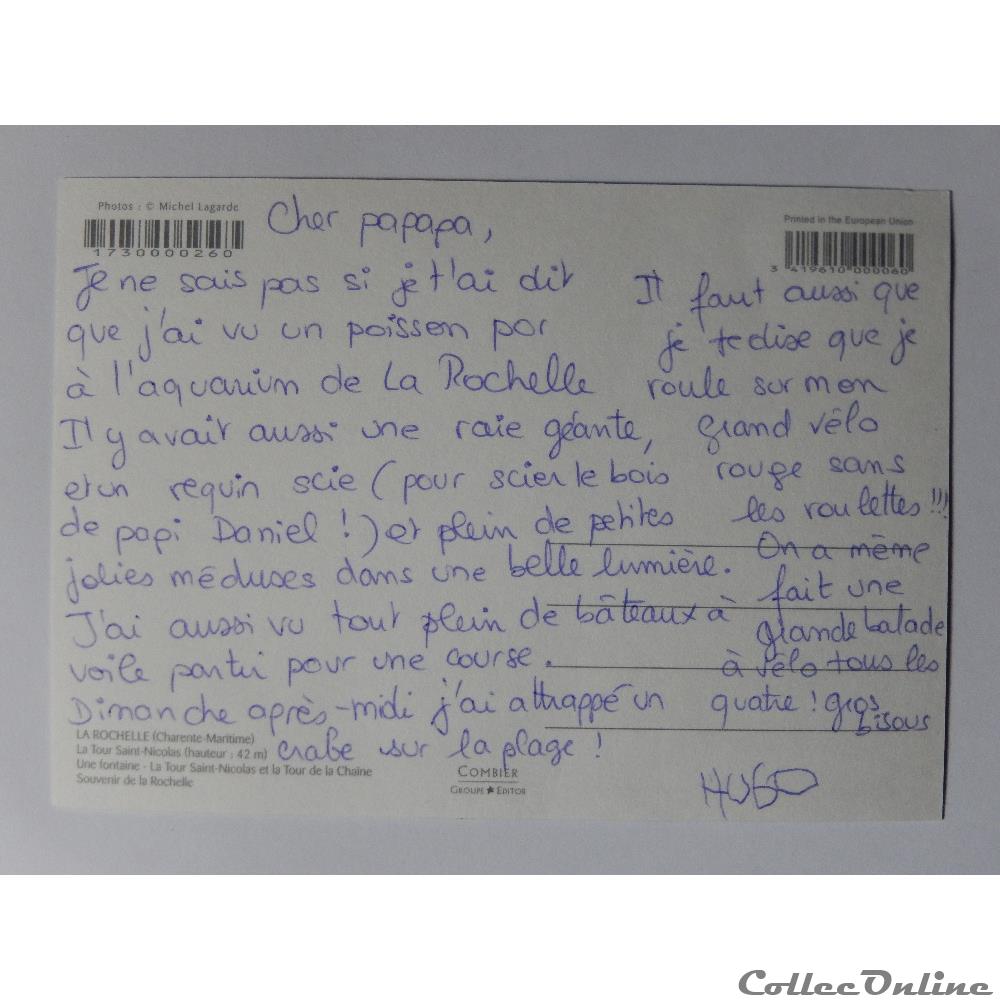 Photos : © Michel Lagarde
1730000260
Printed in the European Union
3 419610 000060
Cher papapa,
Je ne sais pas si je t'ai dit
que j'ai vu un poisson por
à l'aquarium de La Rochelle
Il y avait aussi une raie géante,
et un requin scie (pour scier le bois
de papi Daniel !) et plein de petites
jolies méduses dans une belle lumière.
J'ai aussi vu tout plein de bâteaux à
voile partir pour une course.
Dimanche après-midi j'ai attrappé un
crabe sur la plage !
Il faut aussi que
je te dise que je
roule sur mon
grand vélo
rouge sans
les roulettes !!!
On a même
fait une
grande balade
à vélo tous les
quatre ! gros
bisous
HUGO
LA ROCHELLE (Charente-Maritime)
La Tour Saint-Nicolas (hauteur : 42 m)
Une fontaine - La Tour Saint-Nicolas et la Tour de la Chaîne
Souvenir de la Rochelle
COMBIER
GROUPE ★ EDITOR
CollecOnline